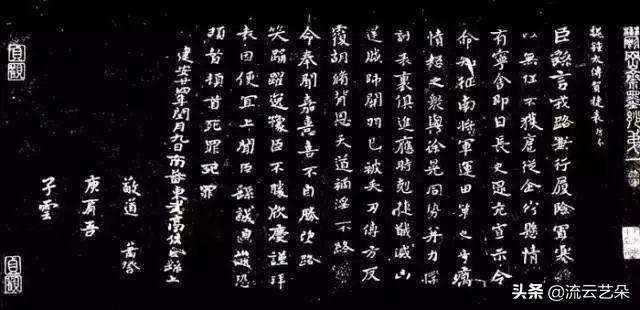 魏鍾太傅賀捷表
臣繇言戎路兼行履險冒寒
以無任不獲扈從企仰懸情
有寧舍即日長史逯充宣示令
命知征南將軍運田單之奇厲
憤怒之衆與徐晃同勢并力撲
討表裏俱進應時剋捷馘滅凶
逆賊帥關羽已被矢刃傅方反
覆胡脩背恩天道禍淫不終
命奉聞嘉憙喜不自勝望路
笑踊躍逸豫臣不勝欣慶謹拜
表因便宜上聞臣繇誠惶誠恐
頓首頓首死罪死罪
建安廿四年閏月九日南蕃東武亭侯臣繇上
敬道
庾肩吾
子雲
貞觀
貞觀
头条 @流云艺朵